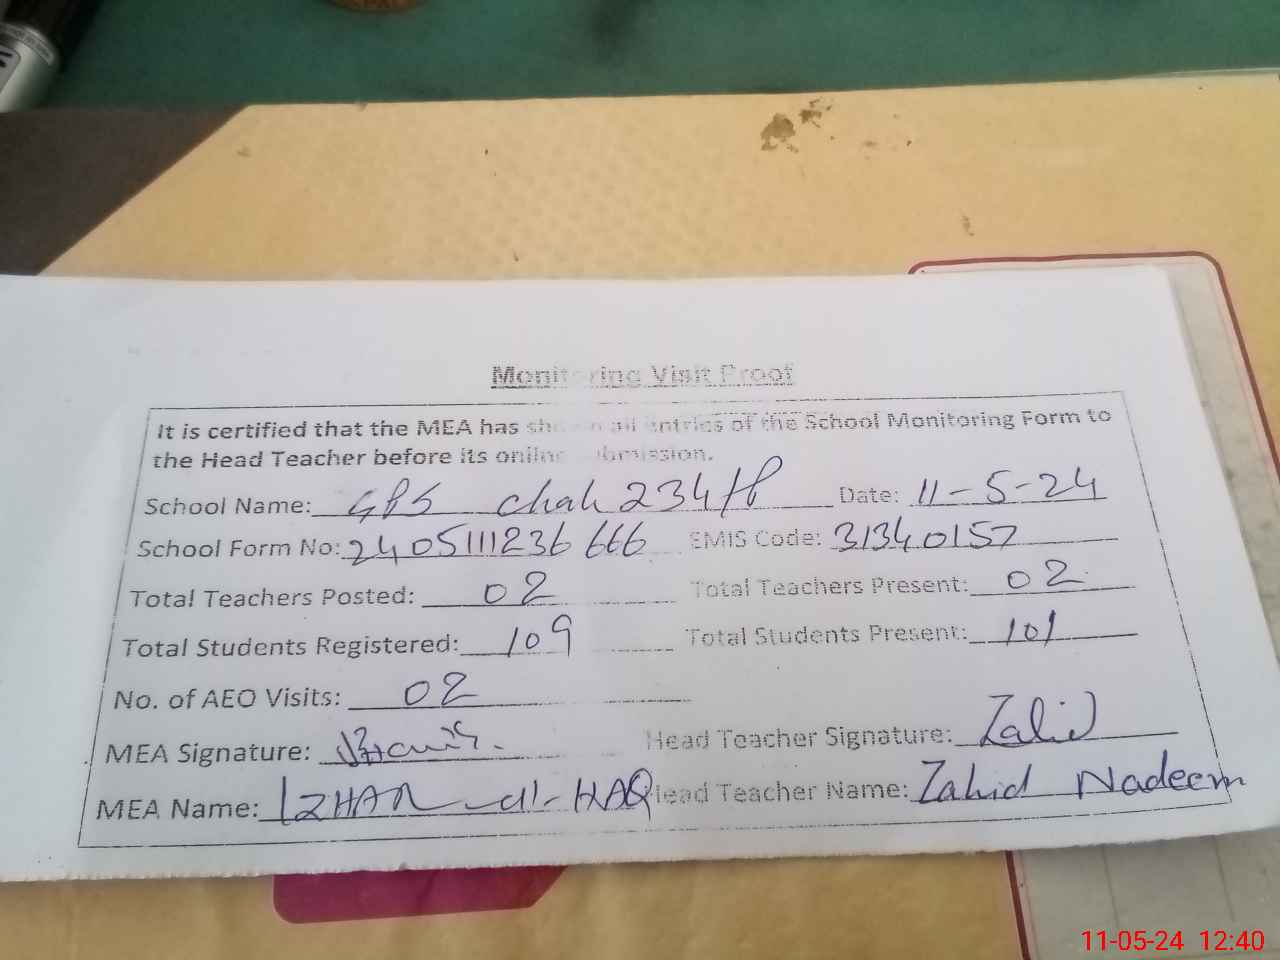 Monitoring Visit Proof
It is certified that the MEA has shown all entries of the School Monitoring Form to
the Head Teacher before its online submission.
School Name: GPS Chak 234/P Date: 11-5-24
School Form No: 2405111236666 EMIS Code: 31340157
Total Teachers Posted: 02 Total Teachers Present: 02
Total Students Registered: 109 Total Students Present: 101
No. of AEO Visits: 02
MEA Signature: Head Teacher Signature: Zahid
MEA Name: IZHAR-ul-HAQ Head Teacher Name: Zahid Nadeem
11-05-24 12:40